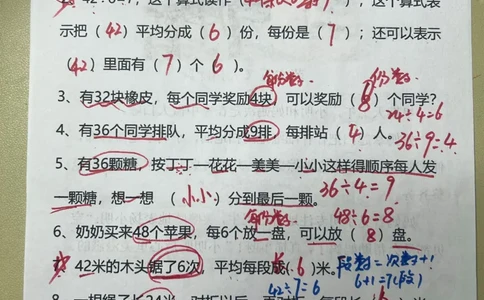 42÷6=7，这个算式读作（42除以6等于7），这个算式表
示把（42）平均分成（6）份，每份是（7）；还可以表示
（42）里面有（7）个（6）。
每份数 份数
3、有32块橡皮，每个同学奖励4块，可以奖励（8）个同学？
24÷4=6
4、有36个同学排队，平均分成9排，每排站（4）人。
36÷9=4
5、有36颗糖，按丁丁—花花—美美—小小这样得顺序每人发
一颗糖，想一想（小小）分到最后一颗。
36÷4=9
每份数 48÷6=8
6、奶奶买来48个苹果，每6个放一盘，可以放（8）盘。
42米的木头锯了6次，平均每段成（6）米。
段数=次数+1
42÷7=6 6+1=7(段)